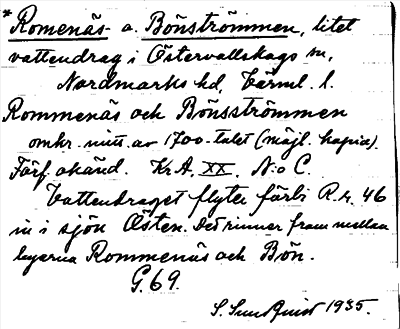 * Romenäs- a. Bönströmmen, litet
vattendrag i Östervallskogs sn,
Nordmarks hd, Värml. l.
Rommenäs och Bönsströmmen
omkr. mitt. av 1700-talet (möjl. kopia).
Förf. okänd. Kr.A. XX. N:o C.
Vattendraget flyter förbi R.r. 46
in i sjön Östen. Det rinner fram mellan
byarna Rommenäs och Bön.
G. 69.
S. Sundquist 1935.